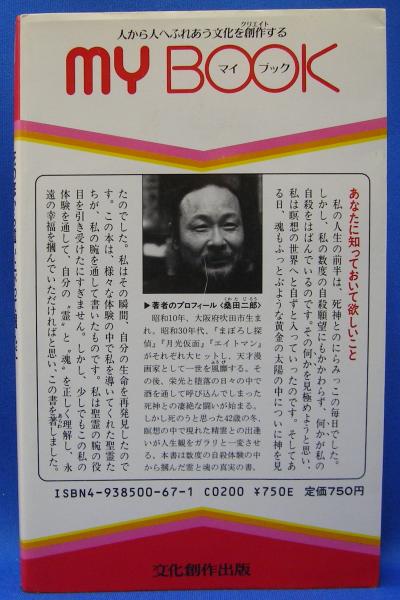 人から人へふれあう文化を創作する
クリエイト
MY BOOK
マイ ブック
あなたに知っておいて欲しいこと
私の人生の前半は、死神とのにらみっこの毎日でした。
しかし、私の数度の自殺願望にもかかわらず、何かが私の
自殺をはばんでいるのです。その何かを見極めようと思い、
私は瞑想の世界へと自ずと入っていったのです。そしてあ
る日、魂もふっとぶような黄金の太陽の中についに神を見
たのでした。私はその瞬間、自分の生命を再発見したので
す。この本は、様々な体験の中で私を導いてくれた聖霊た
ちが、私の腕を通して書いたものです。私は聖霊の腕の役
目を引き受けたにすぎません。しかし、少しでもこの私の
体験を通して、自分の〝霊〟と〝魂〟を正しく理解し、永
遠の幸福を掴んでいただければと思い、この書を著しました。
▶著者のプロフィール〈桑田二郎〉
くわた じろう
昭和10年、大阪府吹田市生ま
れ。昭和30年代、『まぼろし探
偵』『月光仮面』『エイトマン』
がそれぞれ大ヒットし、天才漫
画家として一世を風靡する。そ
ふうび
の後、栄光と堕落の日々の中で
酒を通して呼び込んでしまった
死神との凄絶な闘いが始まる。
しかし死のうと思った42歳の冬、
瞑想の中で現れた精霊との出逢
いが人生観をガラリと一変させ
る。本書は数度の自殺体験の中
から掴んだ霊と魂の真実の書。
ISBN4-938500-67-1 C0200 ¥750E 定価750円
文化創作出版